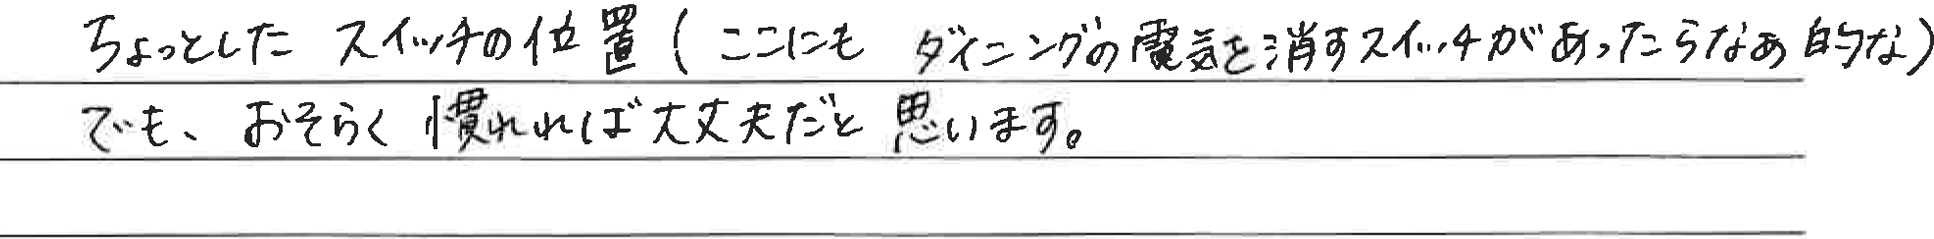 ちょっとした スイッチの位置(ここにも ダイニングの電気を消すスイッチがあったらなあ的な)
でも、おそらく慣れれば大丈夫だと思います。